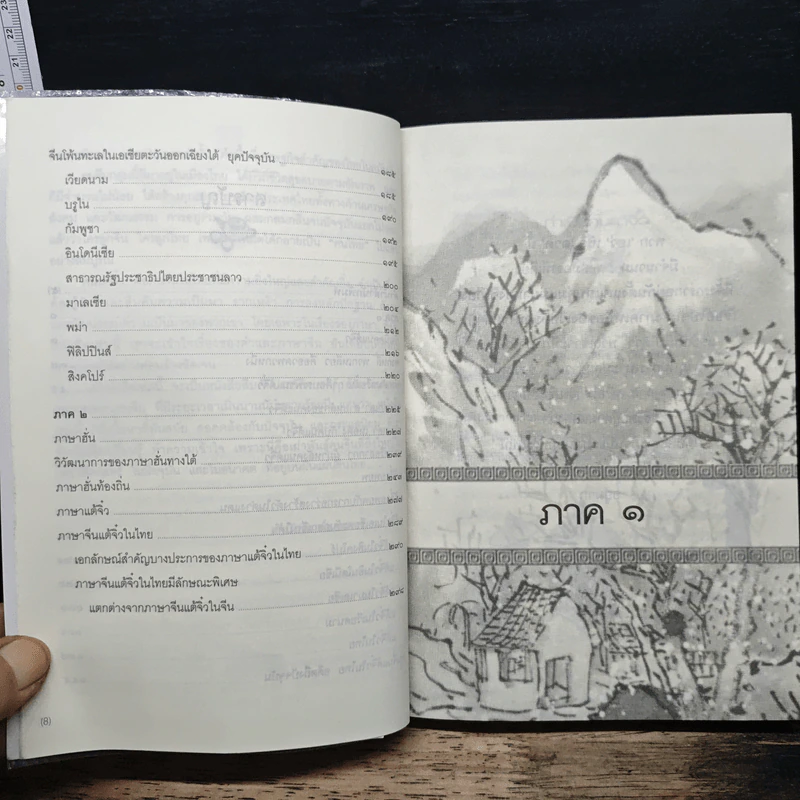 จีนโพ้นทะเลในเอเชียตะวันออกเฉียงใต้ ยุคปัจจุบัน ๑๘๕
เวียดนาม ๑๘๕
บรูไน ๑๙๐
กัมพูชา ๑๙๒
อินโดนีเซีย ๑๙๕
สาธารณรัฐประชาธิปไตยประชาชนลาว ๒๐๐
มาเลเซีย ๒๐๔
พม่า ๒๑๒
ฟิลิปปินส์ ๒๑๖
สิงคโปร์ ๒๒๐
ภาค ๒ ๒๒๕
ภาษาฮั่น ๒๒๗
วิวัฒนาการของภาษาฮั่นทางใต้ ๒๓๙
ภาษาฮั่นท้องถิ่น ๒๔๓
ภาษาแต้จิ๋ว ๒๗๓
ภาษาจีนแต้จิ๋วในไทย ๒๘๙
เอกลักษณ์สำคัญบางประการของภาษาแต้จิ๋วในไทย ๒๙๐
ภาษาจีนแต้จิ๋วในไทยมีลักษณะพิเศษ
แตกต่างจากภาษาจีนแต้จิ๋วในจีน ๒๙๘
(8)
ภาค ๑
23
22
21